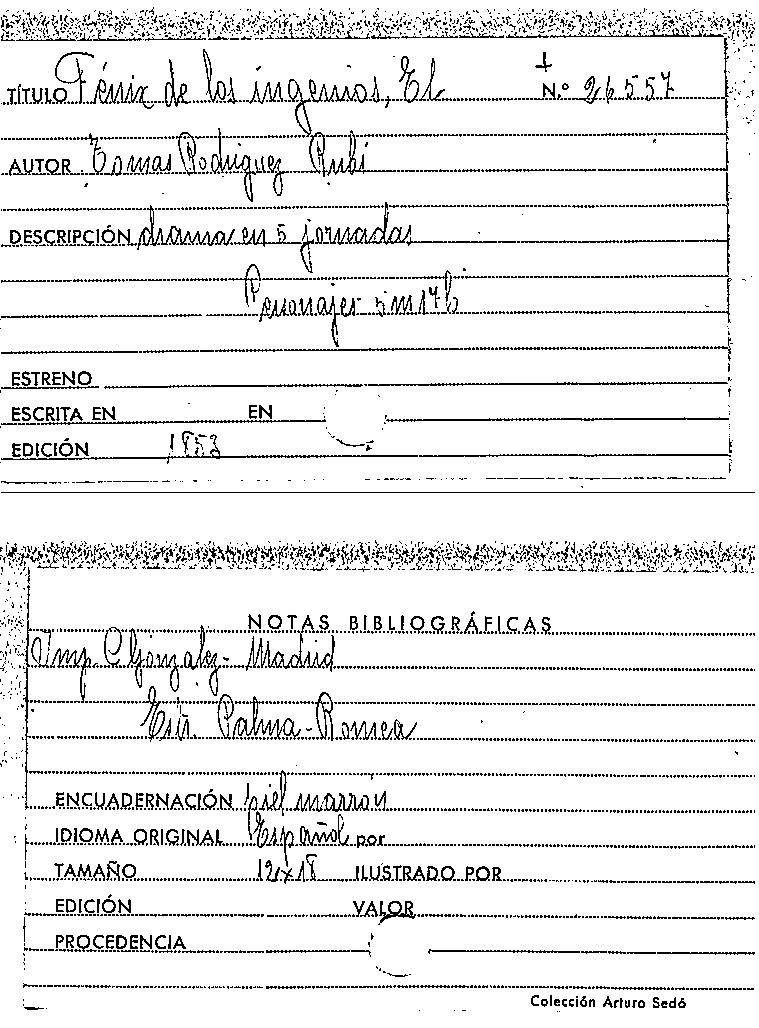 TÍTULO Fénix de los ingenios, El N.º 26557
AUTOR Tomas Rodriguez Rubi
DESCRIPCIÓN drama en 5 jornadas
Personajes 5 m 17 h
ESTRENO
ESCRITA EN EN
EDICIÓN 1853
NOTAS BIBLIOGRÁFICAS
Imp. C Gonzalez - Madrid
Estr. Palma - Romea
ENCUADERNACIÓN piel marrón
IDIOMA ORIGINAL Español por
TAMAÑO 12x18 ILUSTRADO POR
EDICIÓN VALOR
PROCEDENCIA
Colección Arturo Sedó